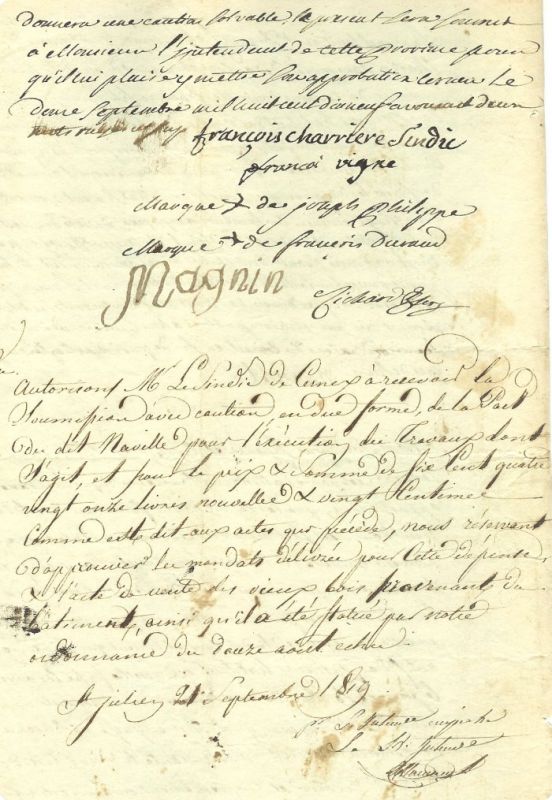 donnera une caution solvable, le présent sera soumis
à Monsieur l'intendant de cette province pour
qu'il lui plaise y mettre son approbation Cernex Le
douze Septembre mil huit cent dix neuf
françois charriere Sindic
françoi vigne
Marque + de joseph philippe
Marque + de françois Durand
Magnin
Richard
Autorisons Mr Le Sindic de Cernex à recevoir la
Soumission avec caution en due forme, de la Part
du dit Navelle pour l'exécution des Travaux dont
s'agit, et pour le prix & Somme de Six Cent quatre
vingt onze livres nouvelles & vingt Centimes
Comme est dit aux actes que précéde, nous réservant
d'approuver les mandats délivrés pour Cette dépense,
& l'acte de vente des vieux bois provenants du
batiment, ainsi qu'il a été statué par notre
ordonnance du douze aout echu.
St julien 21 Septembre 1819